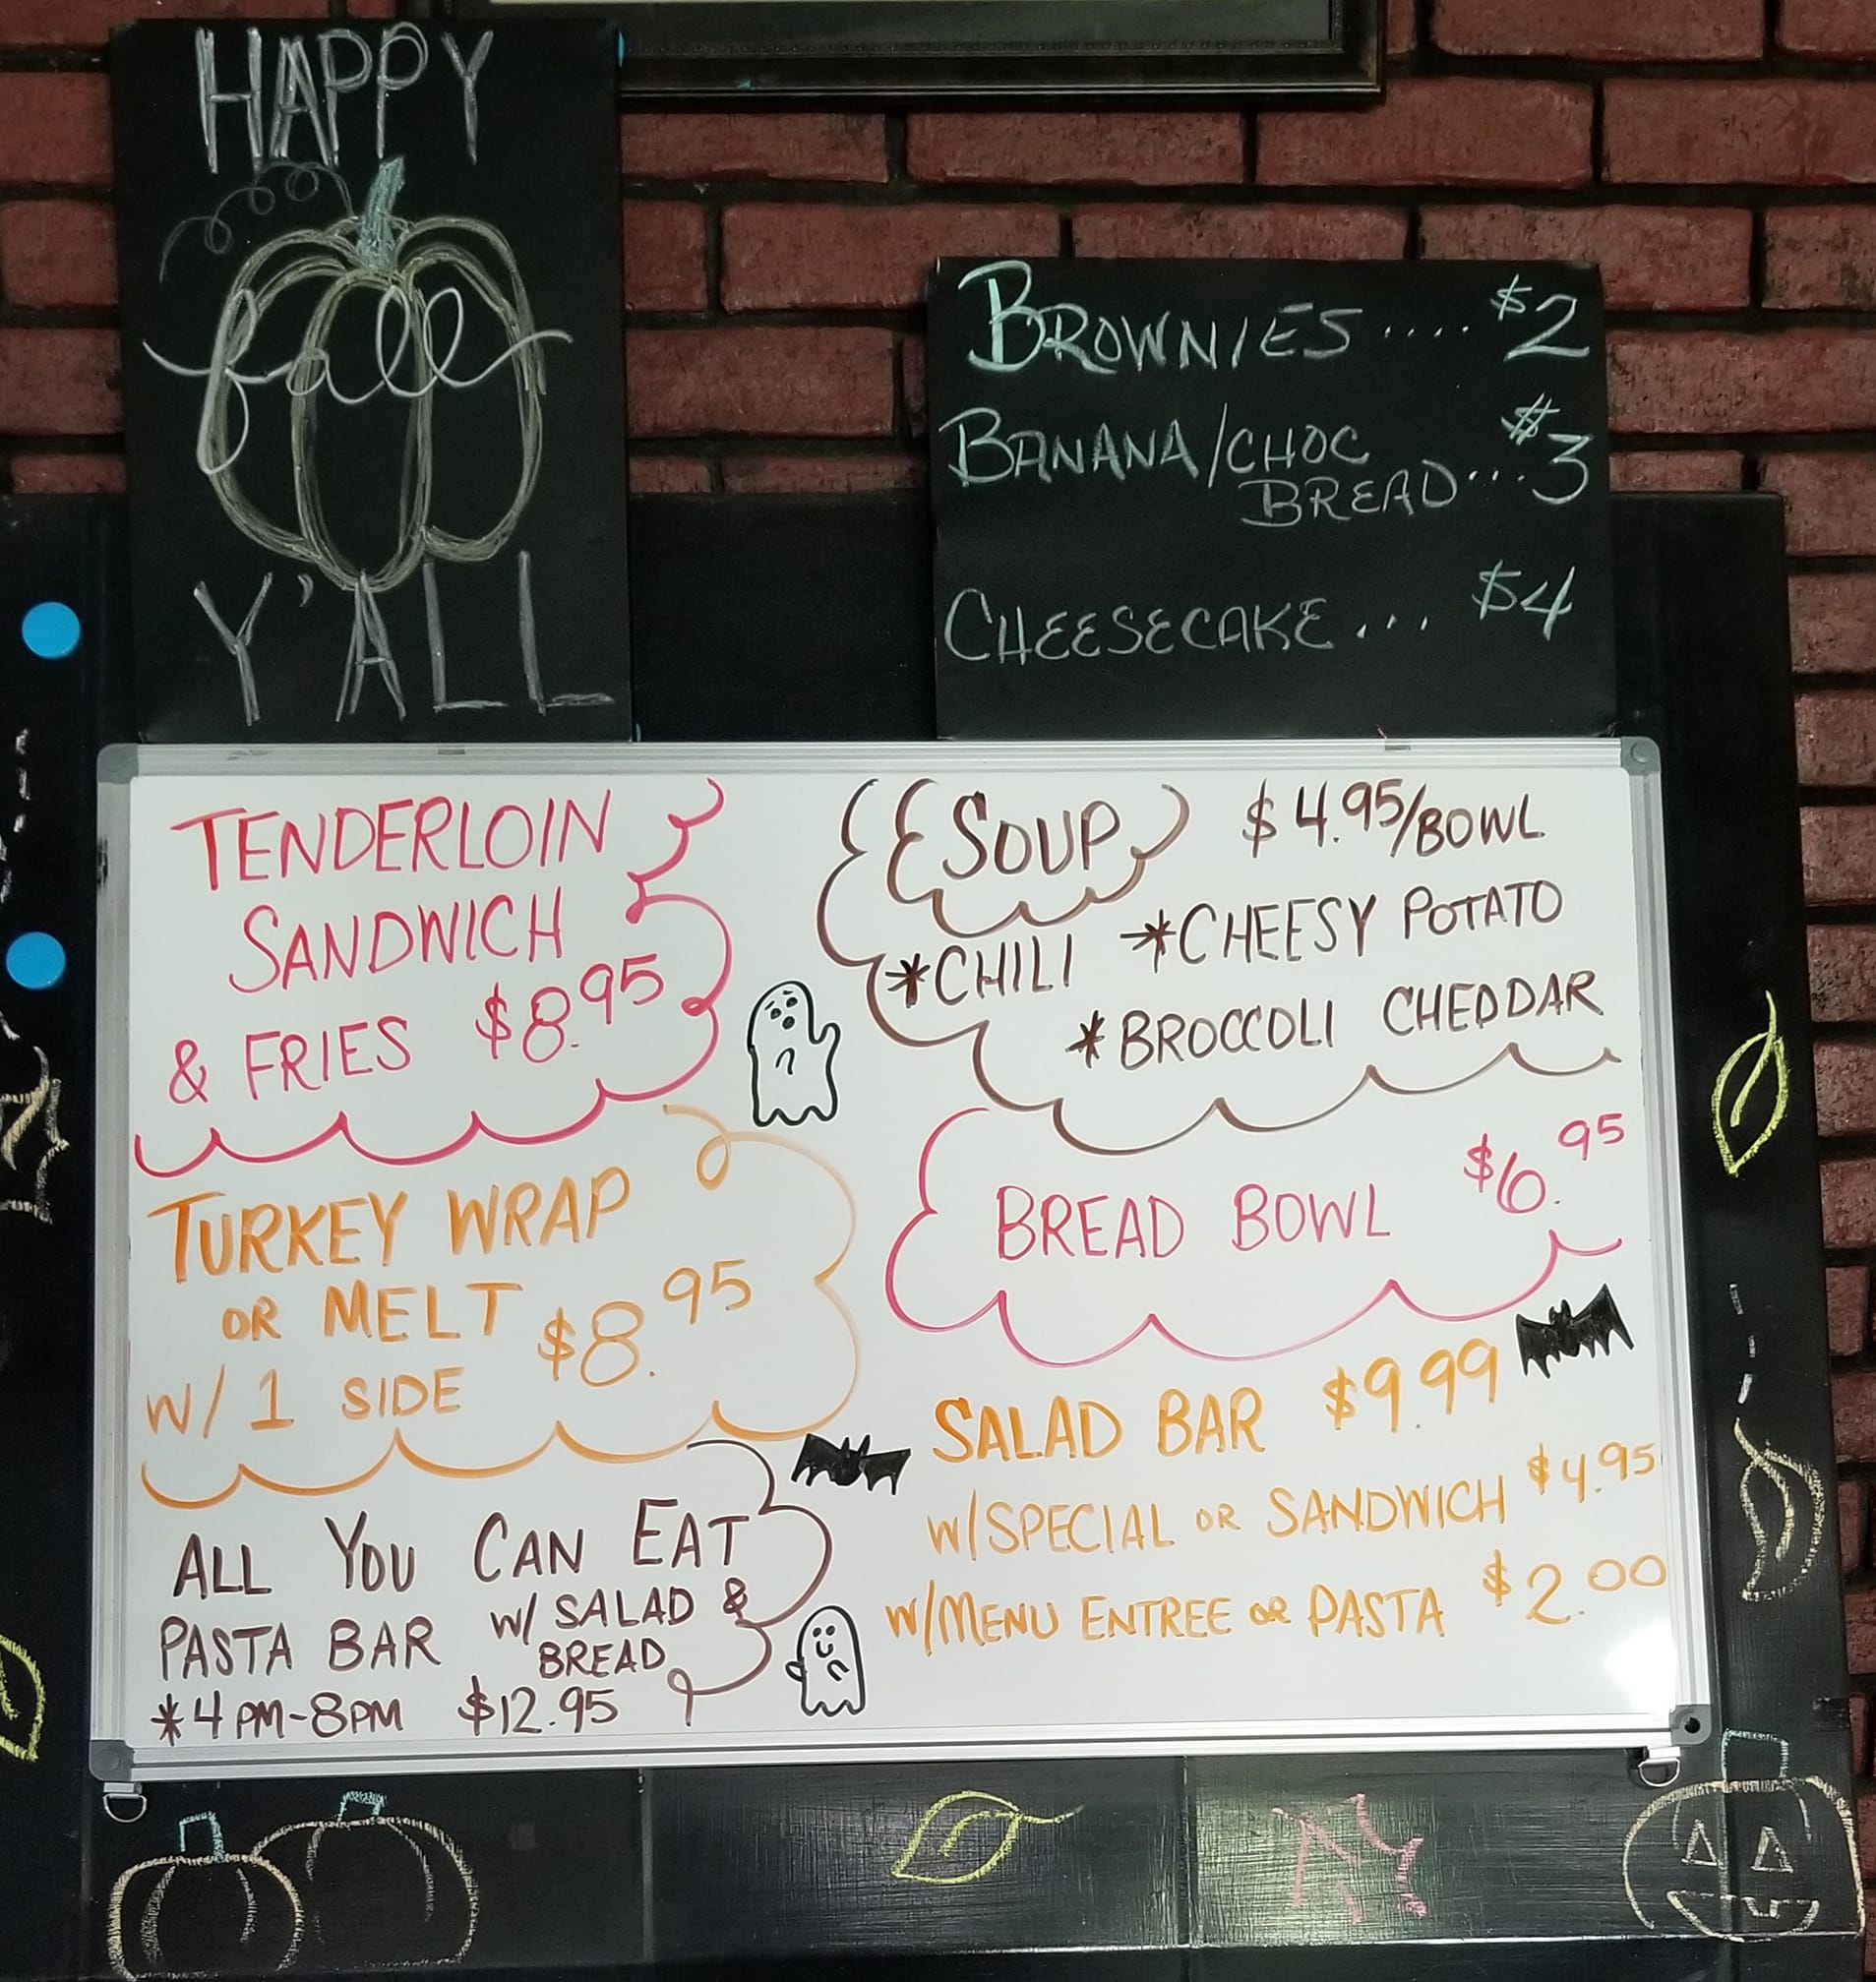 HAPPY
fall
Y'ALL
BROWNIES .... $2
BANANA/CHOC
BREAD ... $3
CHEESECAKE ... $4
TENDERLOIN
SANDWICH
& FRIES $8.95
TURKEY WRAP
OR MELT $8.95
W/ 1 SIDE
ALL YOU CAN EAT
PASTA BAR W/ SALAD &
BREAD
*4PM-8PM $12.95
SOUP $4.95/BOWL
*CHILI *CHEESY POTATO
*BROCCOLI CHEDDAR
BREAD BOWL $6.95
SALAD BAR $9.99
W/SPECIAL OR SANDWICH $4.95
W/MENU ENTREE OR PASTA $2.00